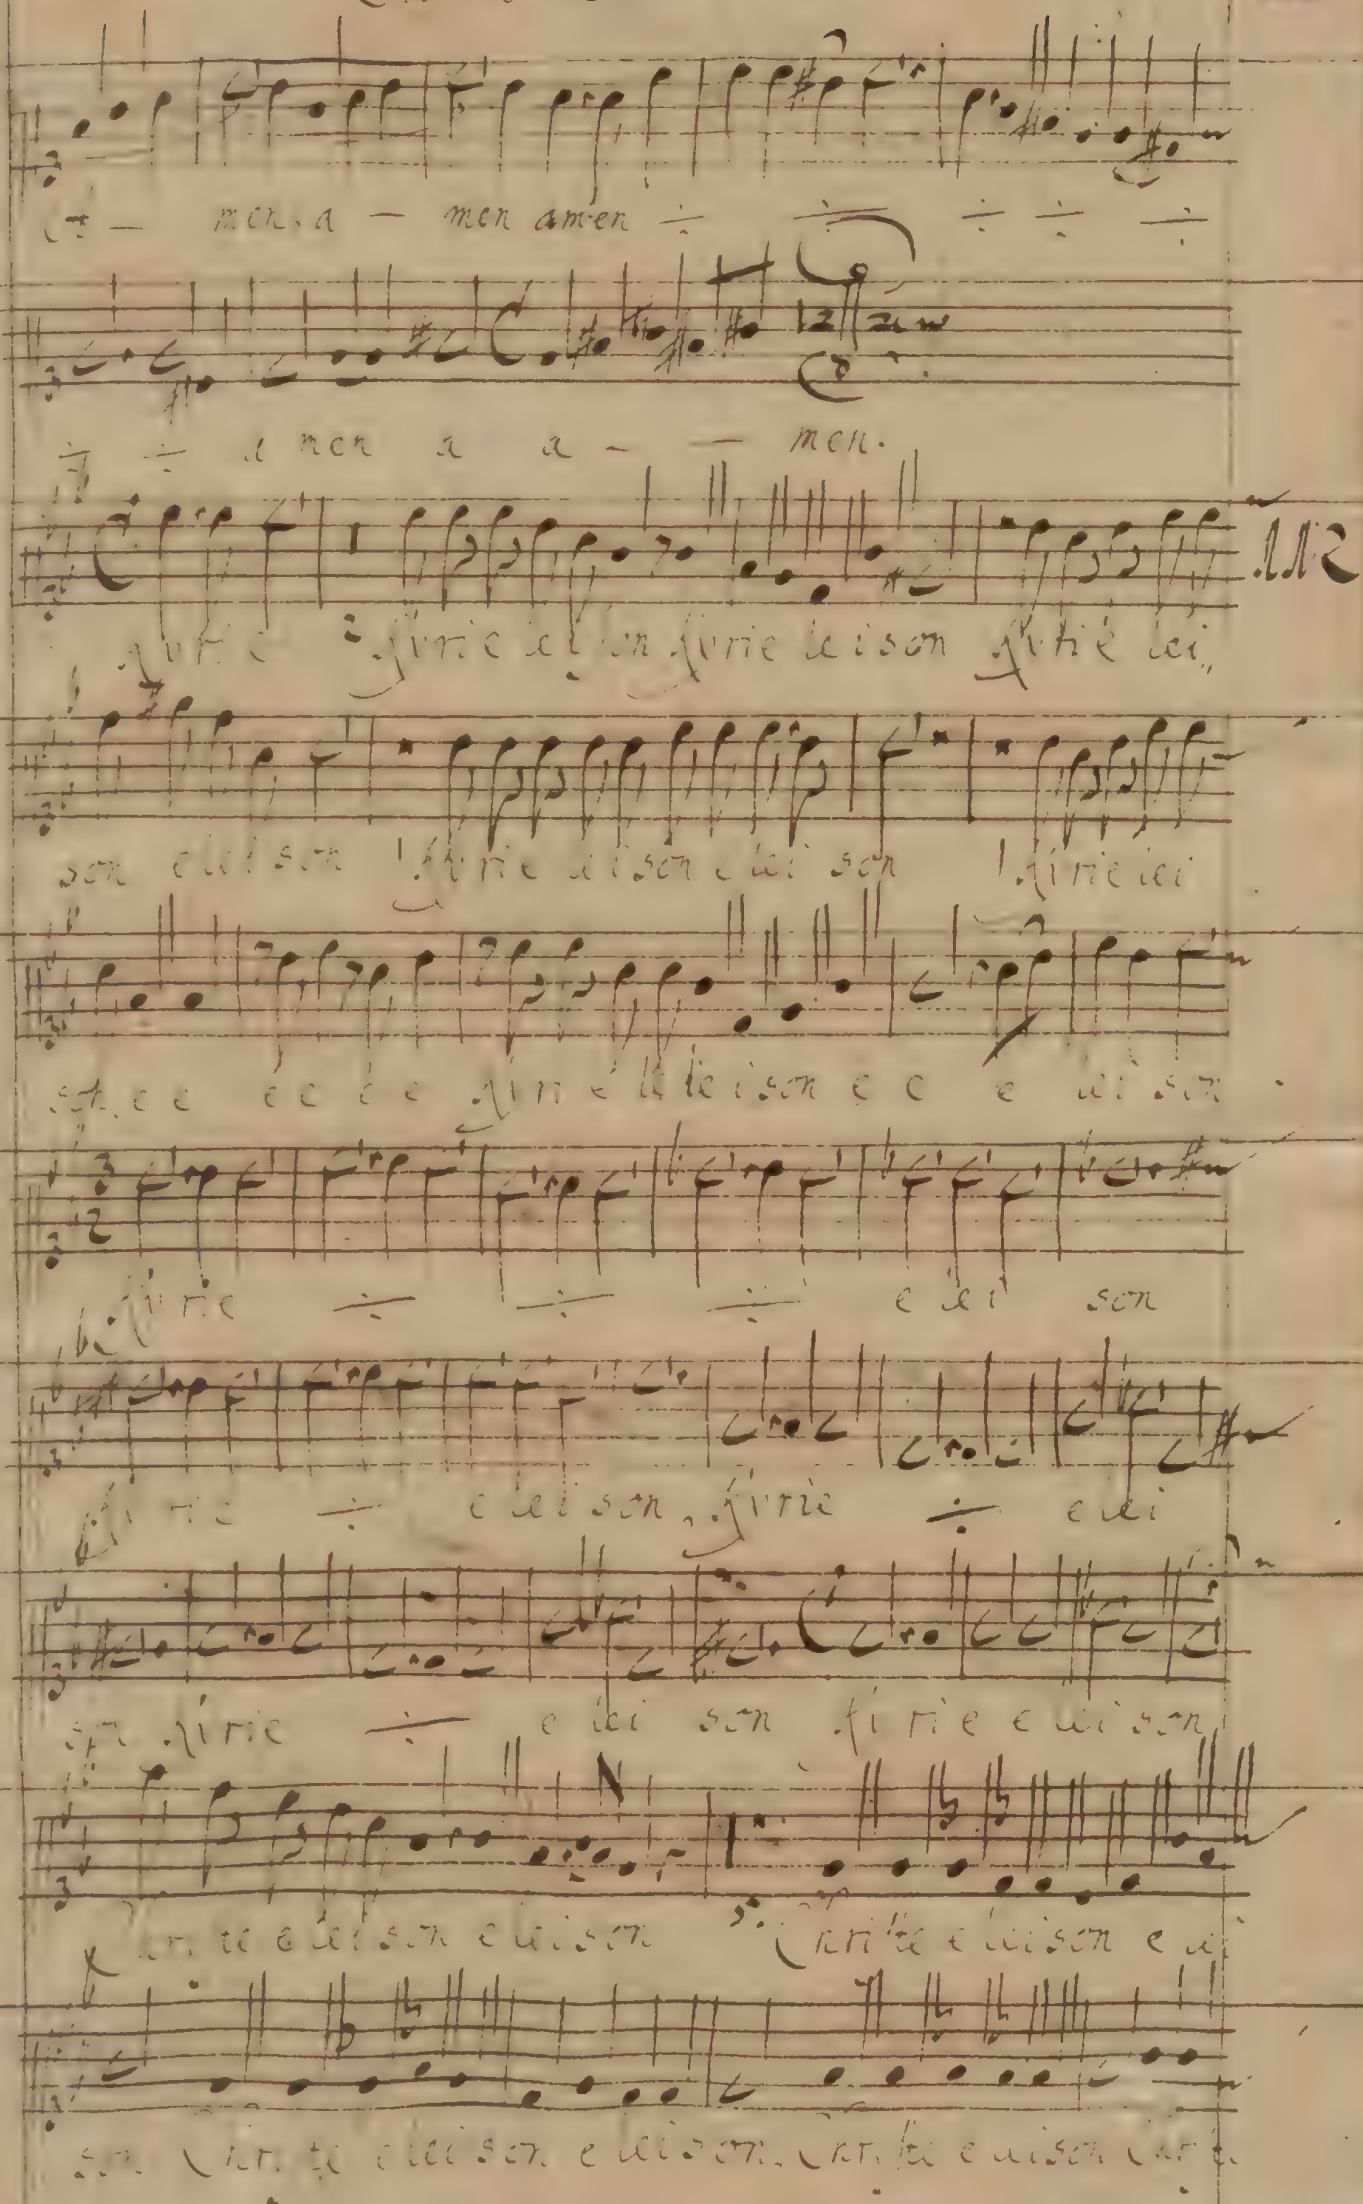 A – men. a – men amen ÷ ÷ ÷ ÷ ÷
÷ ÷ a men a a – – men.
Kyrie Kyrie elei son Kyrie eleison Kyrie elei,,
son eleison Kyrie eleison elei son Kirie elei
son. e e e e e e Kirie eleison e e e elei son
3
2
Kyrie ÷ ÷ ÷ elei son
Kirie ÷ eleison, Kyrie ÷ elei
son Kirie ÷ e lei son Kirie eleison
Christe eleison eleison Christe eleison elei
son Christe eleison eleison. Christe eleison Christe